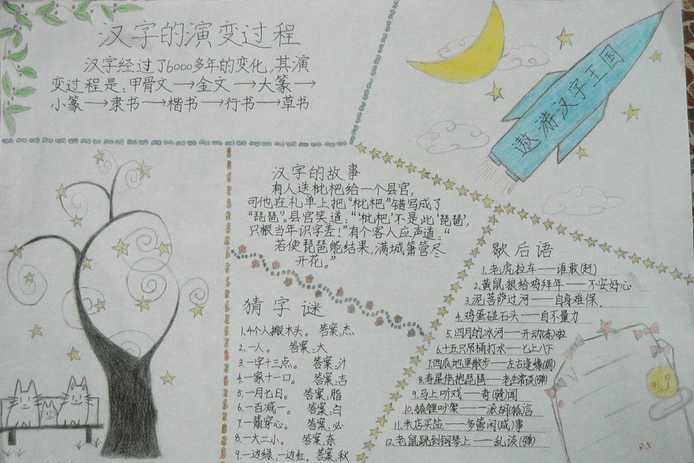 汉字的演变过程
汉字经过了6000多年的变化,其演
变过程是:甲骨文→金文→大篆→
小篆→隶书→楷书→行书→草书
遨游汉字王国
汉字的故事
有人送枇杷给一个县官,
可他在礼单上把"枇杷"错写成了
"琵琶"。县官笑道:"'枇杷'不是此'琵琶',
只恨当年识字差!"有个客人应声道:"
若使琵琶能结果,满城箫管尽
开花。"
猜字谜
1.4个人搬木头。 答案:杰
2.一人。 答案:大
3.一字十三点。 答案:汁
4.一家十一口。 答案:吉
5.一月七日。 答案:脂
6.一百减一。 答案:白
7.一箭穿心。 答案:必
8.一大二小。 答案:奈
9.一边绿,一边红。 答案:秋
歇后语
1.老虎拉车——谁敢(赶)
2.黄鼠狼给鸡拜年——不安好心
3.泥菩萨过河——自身难保
4.鸡蛋碰石头——自不量力
5.四月的冰河——开动(冻)啦
6.十五只吊桶打水——七上八下
7.西瓜地里散步——左右逢缘(圆)
8.寿星弹琵琶——老生常谈(弹)
9.马上听戏——奇(骑)闻
10.狐狸吵架——
11.米店买盐——多管闲(咸)事
12.老鼠跳到钢琴上——乱谈(弹)